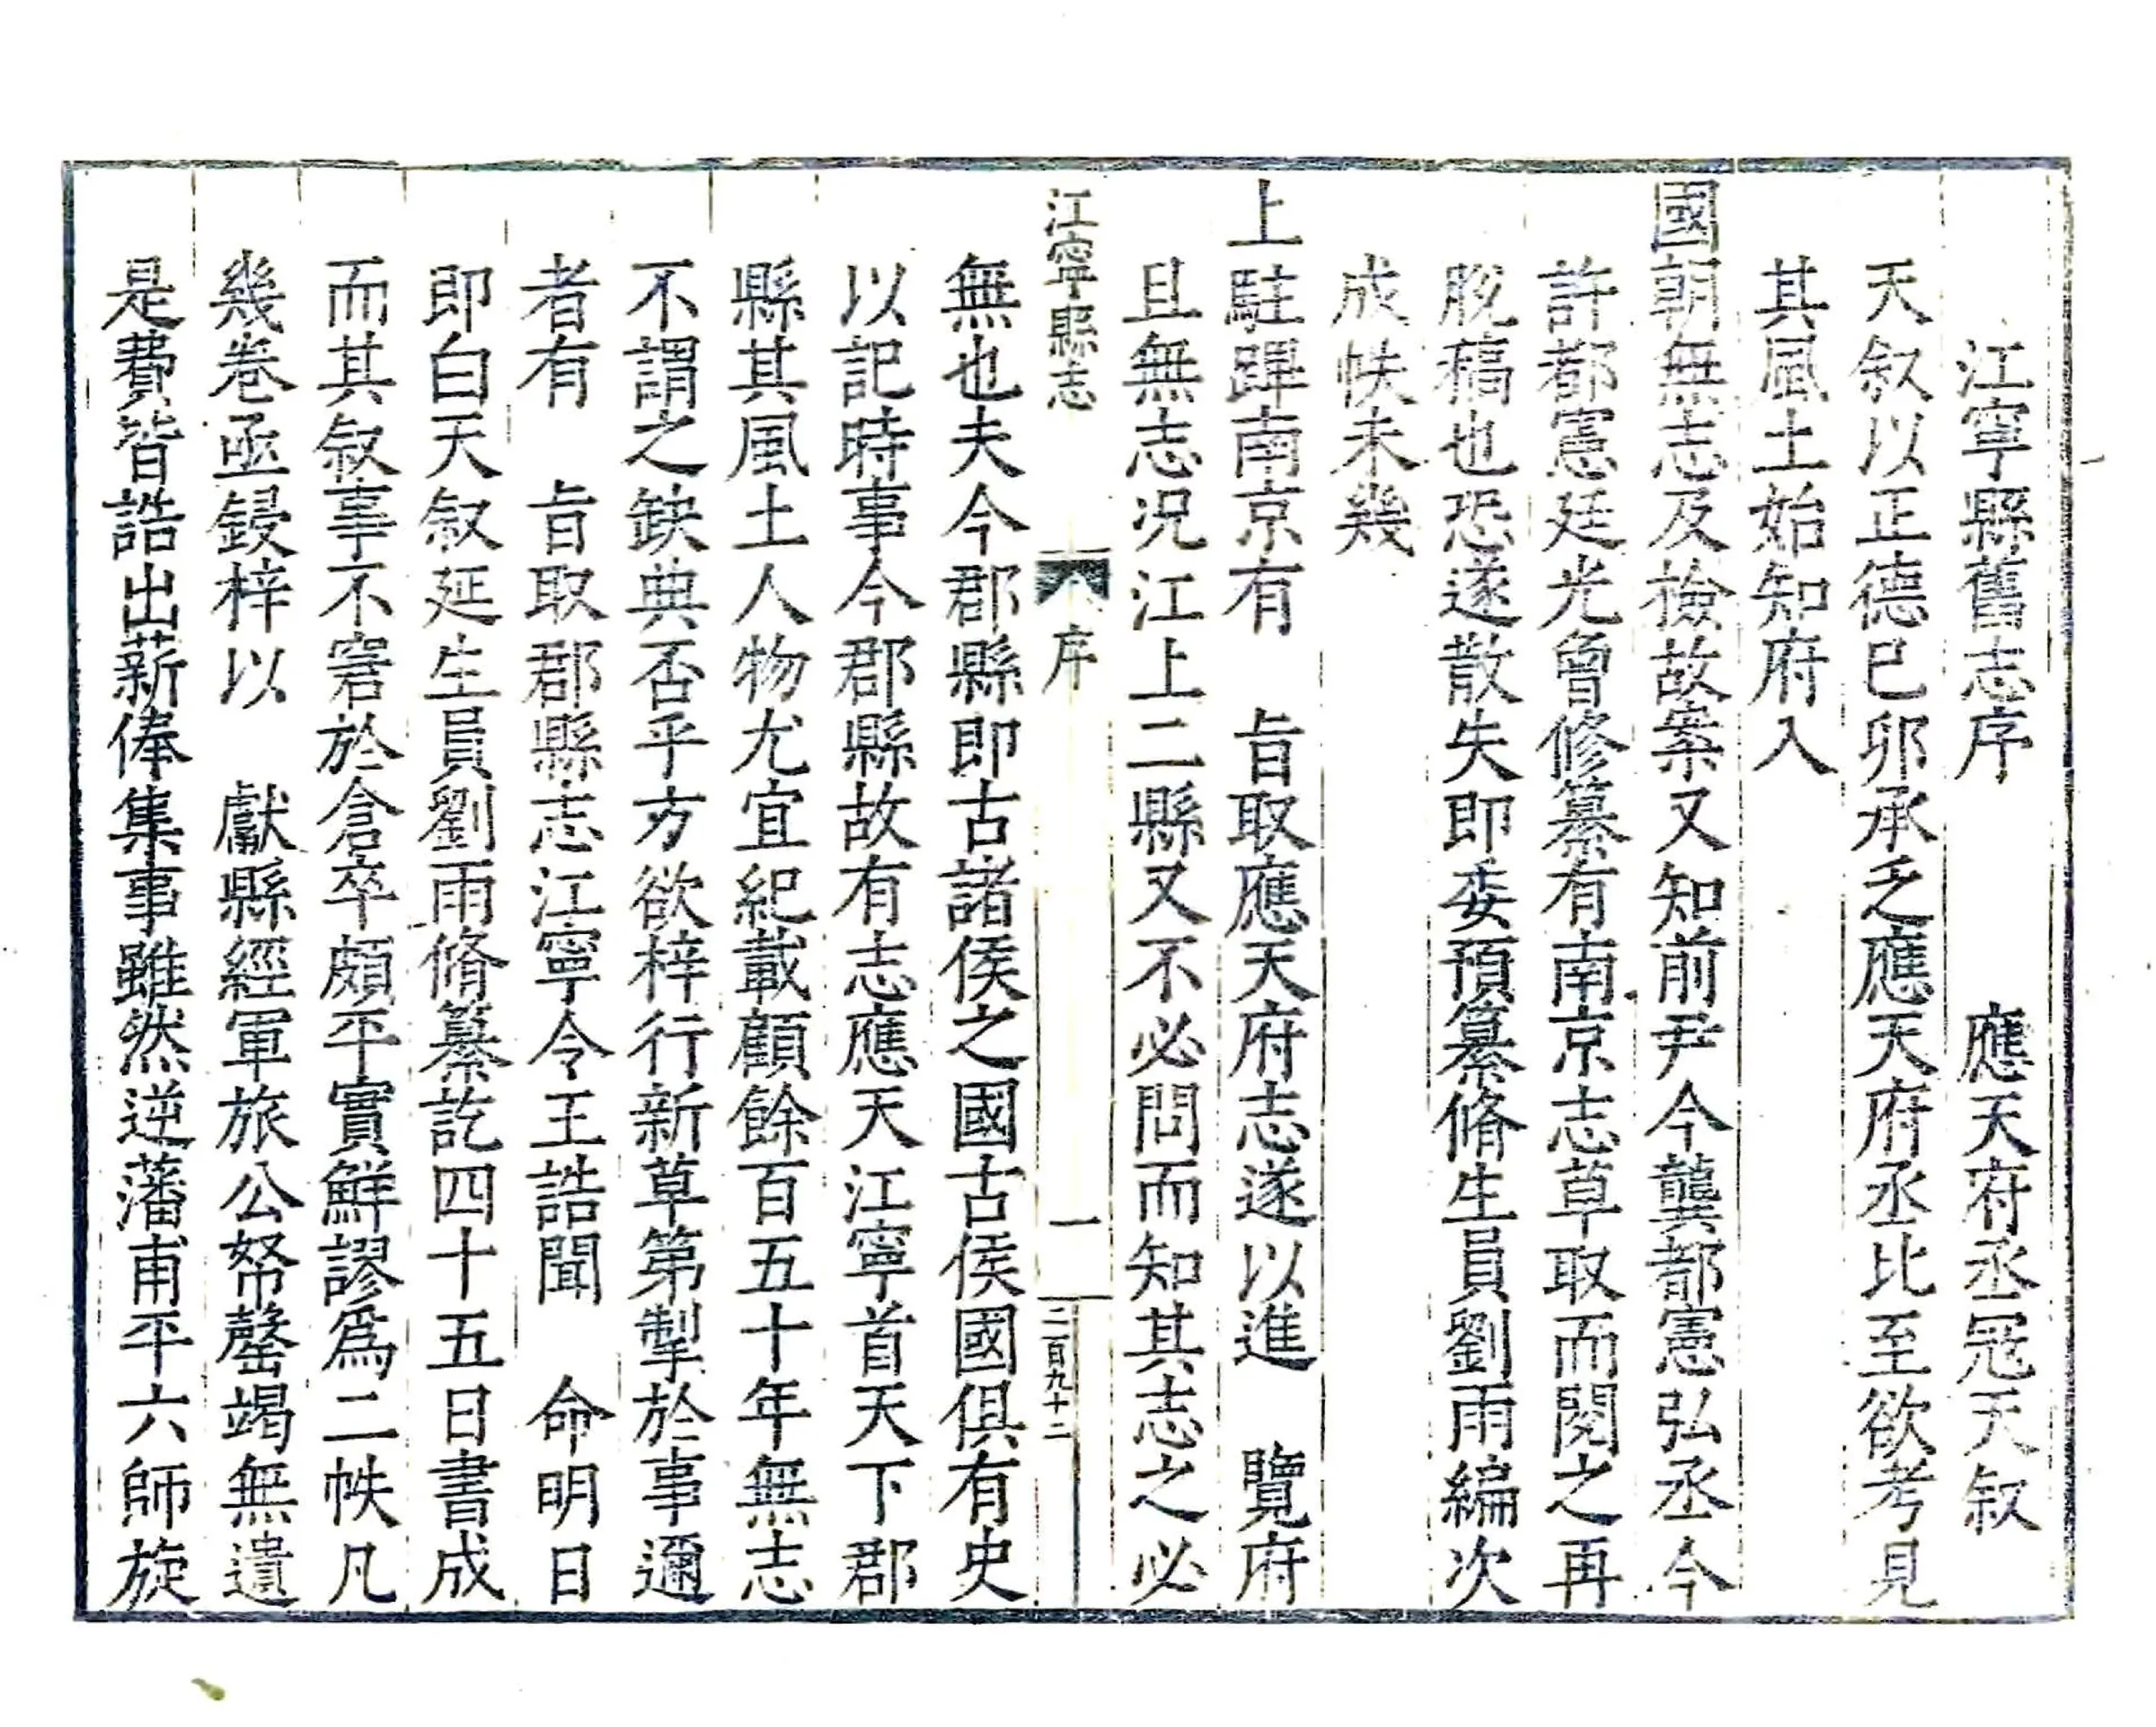 江寧縣舊志序 應天府丞冦天叙
天叙以正德己卯承乏應天府丞比至欲考見
其風土始知府入
國朝無志及檢故案又知前尹今龔都憲弘丞今
許都憲廷光曾修纂有南京志草取而閱之再
脫稿也恐遂散失即委預纂脩生員劉雨編次
成帙未幾
上駐蹕南京有 旨取應天府志遂以進 覽府
且無志况江上二縣又不必問而知其志之必
江寧縣志 序 一 二百九十二
無也夫今郡縣即古諸侯之國古侯國俱有史
以記時事今郡縣故有志應天江寧首天下郡
縣其風土人物尤宜紀載顧餘百五十年無志
不謂之缺典否乎方欲梓行新草第掣於事邇
者有 旨取郡縣志江寧令王誥聞 命明日
即白天叙延生員劉雨脩纂訖四十五日書成
而其叙事不窘於倉卒頗平實鮮謬爲二帙凡
幾卷亟鋟梓以 獻縣經軍旅公帑罄竭無遺
是費皆誥出薪俸集事雖然逆藩甫平六師旋